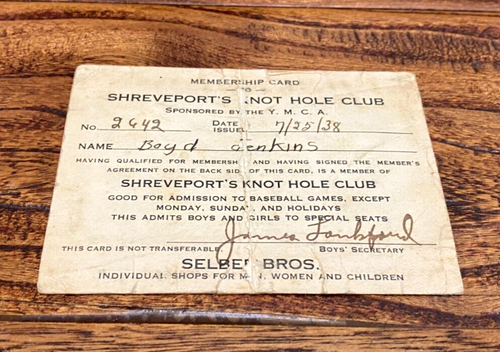 MEMBERSHIP CARD
TO
SHREVEPORT'S KNOT HOLE CLUB
SPONSORED BY THE Y. M. C. A.
No. 2642 DATE ISSUED 7/25/38
NAME Boyd Jenkins
HAVING QUALIFIED FOR MEMBERSHIP AND HAVING SIGNED THE MEMBER'S
AGREEMENT ON THE BACK SIDE OF THIS CARD, IS A MEMBER OF
SHREVEPORT'S KNOT HOLE CLUB
GOOD FOR ADMISSION TO BASEBALL GAMES, EXCEPT
MONDAY, SUNDAY, AND HOLIDAYS
THIS ADMITS BOYS AND GIRLS TO SPECIAL SEATS
James Lankford
THIS CARD IS NOT TRANSFERABLE. BOYS' SECRETARY
SELBER BROS.
INDIVIDUAL SHOPS FOR MEN, WOMEN AND CHILDREN